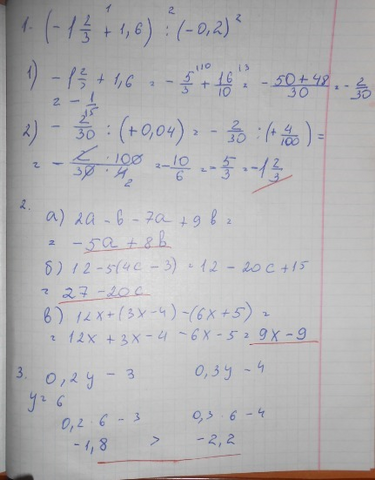 1. (-1 2/3 + 1,6) : (-0,2)²
1) -1 2/3 + 1,6 = -5/3 + 16/10 = -50+48/30 = -2/30
= -1/15
2) -2/30 : (+0,04) = -2/30 : (+4/100) =
= -2 · 100/30 · 4 2 = -10/6 = -5/3 = -1 2/3
2.
а) 2а - в - 7а + 9в =
= -5а + 8в
б) 12 - 5(4с - 3) = 12 - 20с + 15
= 27 - 20с
в) 12х + (3х - 4) - (6х + 5) =
= 12х + 3х - 4 - 6х - 5 = 9х - 9
3. 0,2у - 3 0,3у - 4
у = 6
0,2 · 6 - 3 0,3 · 6 - 4
-1,8 > -2,2